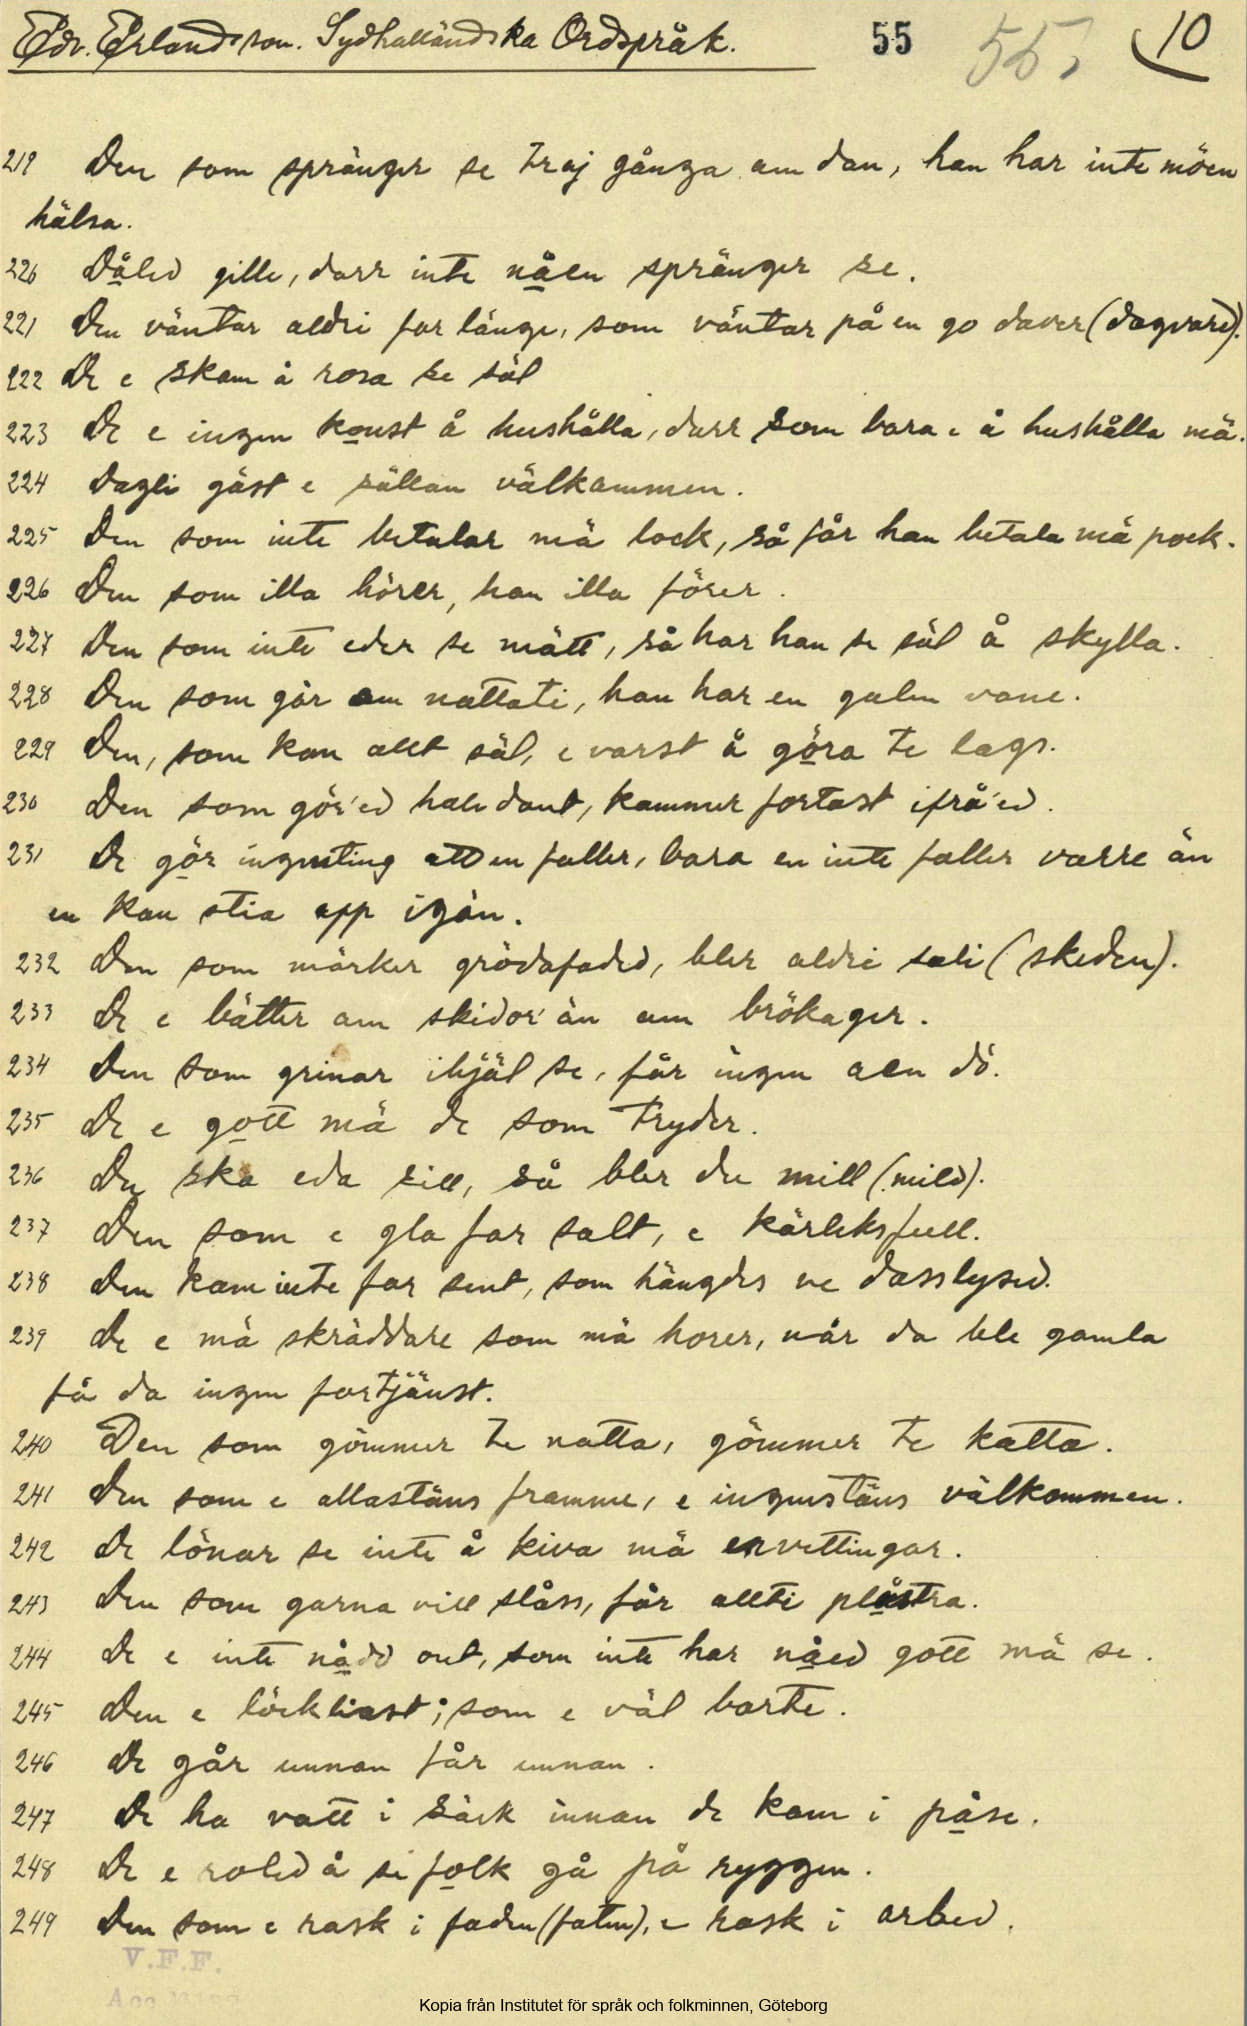 Edv. Erlandsson. Sydhalländska Ordspråk. 55 55, 10
219 Den som spränger se traj gånga am dan, han har inte möen
hälsa.
220 Dåled gille, darr inte nåen spränger se.
221 Den väntar aldri far länge, som väntar på en go daver (dagvard).
222 De e skam å rosa se säl
223 De e ingen konst å hushålla, darr som bara e å hushålla mä.
224 Dagli gäst e sällan välkammen.
225 Den som inte betalar mä lock, så får han betala mä pock.
226 Den som illa hörer, han illa förer.
227 Den som inte eder se mätt, så har han se säl å skylla.
228 Den som går am nattati, han har en galen vane.
229 Den, som kan allt säl, e varst å göra te lags.
230 Den som gör'ed halvdant, kammer fortast ifrå'ed.
231 De gör ingenting att en faller, bara en inte faller varre än
en kan stia app igän.
232 Den som märker grödafaded, bler aldri sali (skeden).
233 De e bätter am skidor än am brökager.
234 Den som grinar ihjäl se, får ingen aen dö.
235 De e gott mä de som tryder.
236 Du ska eda sill, så bler du mill (mild).
237 Den som e gla far salt, e kärleksfull.
238 Den kam inte far sent, som hängdes ve dasslysed.
239 De e mä skräddare som mä horer, när da ble gamla
få da ingen fortjänst.
240 Den som gömmer te natta, gömmer te katta.
241 Den som e allastäns framme, e ingenstäns välkommen.
242 De lönar se inte å kiva mä envettingar.
243 Den som garna vill slåss, får allti plåstra.
244 De e inte nådd ont, som inte har nåed gott mä se.
245 Den e löckliast; som e väl barte.
246 De går unnan får unnan.
247 De ha vatt i säck innan de kam i påse.
248 De e roled å si folk gå på ryggen.
249 Den som e rask i faden (faten), e rask i arbed.
V.F.F.
Kopia från Institutet för språk och folkminnen, Göteborg